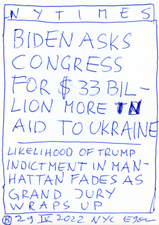 NYTIMES
BIDEN ASKS
CONGRESS
FOR $33 BIL-
LION MORE IN
AID TO UKRAINE
LIKELIHOOD OF TRUMP
INDICTMENT IN MAN-
HATTAN FADES AS
GRAND JURY
WRAPS UP
29 IV 2022 NYC